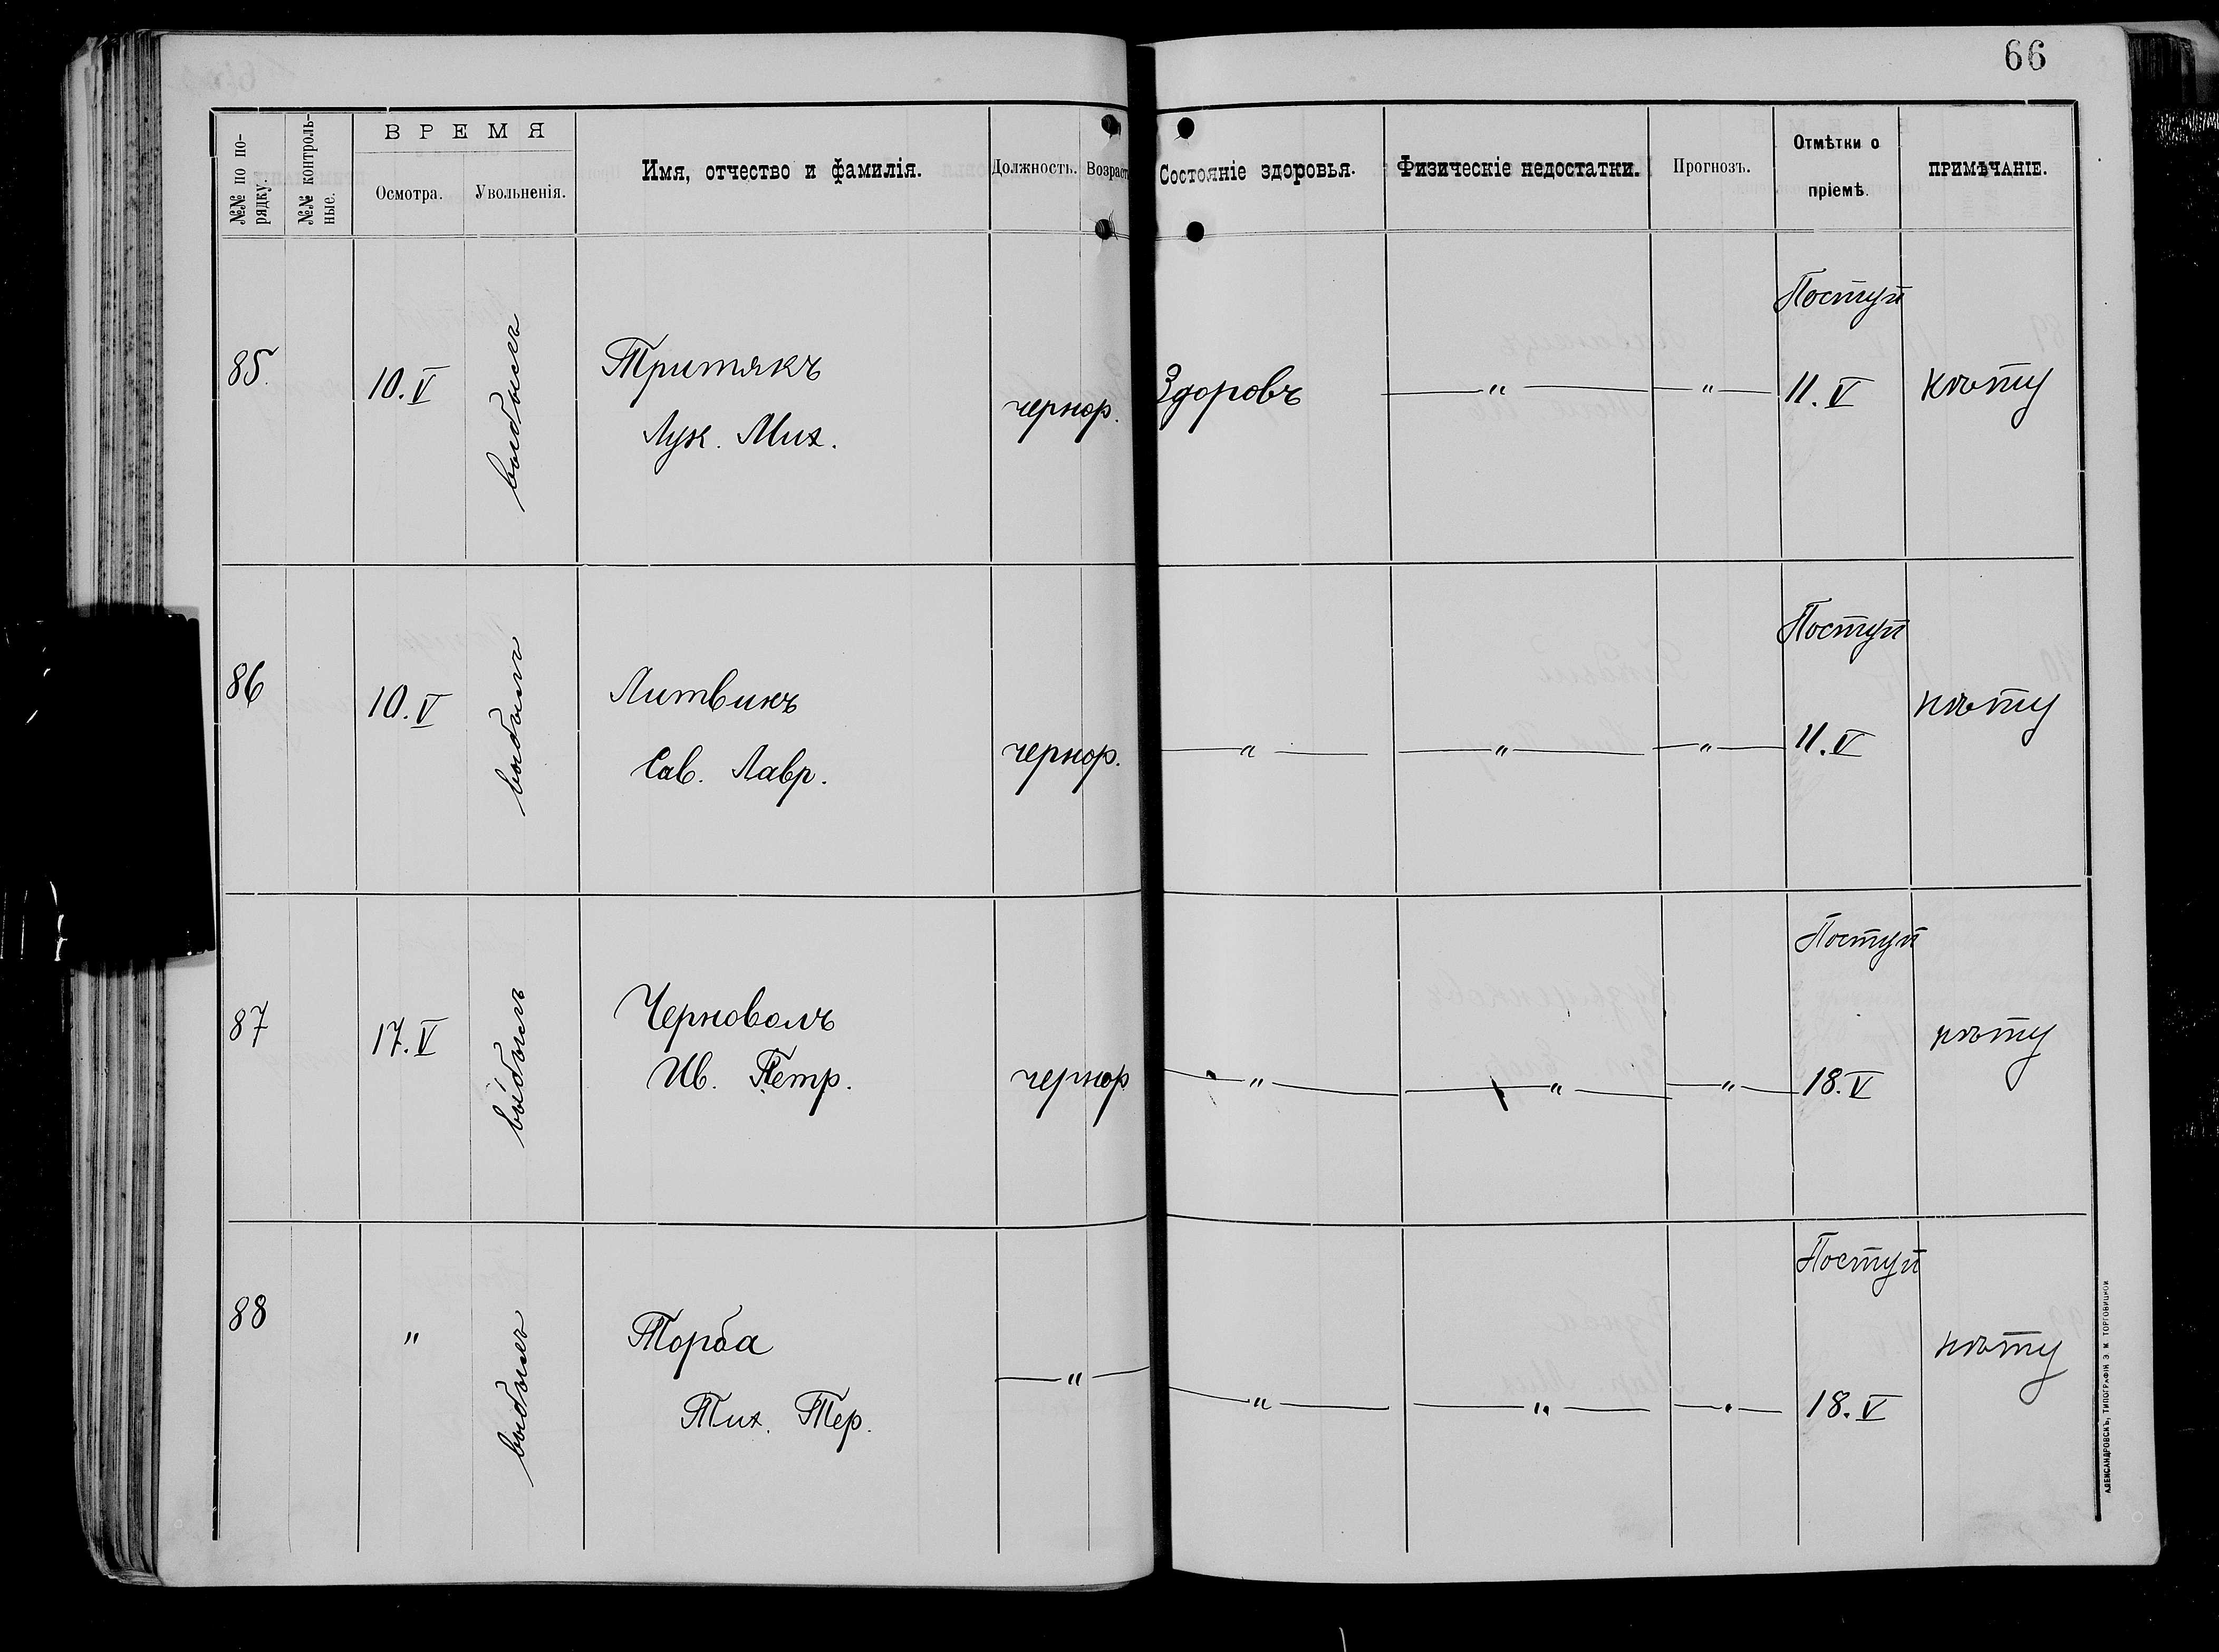 66
№№ по по-
рядку.
№№ контроль-
ные.
ВРЕМЯ
Осмотра.
Увольненія.
Имя, отчество и фамилія.
Должность.
Возраст
Состояніе здоровья.
Физическіе недостатки.
Прогнозъ.
Отмѣтки о
пріемѣ.
ПРИМѢЧАНІЕ.
85.
10. V
выбылъ
Тритякъ
Лук. Мих.
чернор.
Здоровъ
— " —
— " —
Поступ
11. V
нѣту
86
10. V
выбылъ
Литвикъ
Сав. Лавр.
чернор.
— " —
— " —
— " —
Поступ
11. V
нѣту
87
17. V
выбылъ
Черноволъ
Ив. Петр.
чернор
— " —
— " —
— " —
Поступ
18. V
нѣту
88
"
выбылъ
Торба
Тих. Тер.
— " —
— " —
— " —
— " —
Поступ
18. V
нѣту
АЛЕКСАНДРОВСКЪ, ТИПОГРАФІЯ Э. М. ТОРГОВИЦКОЙ